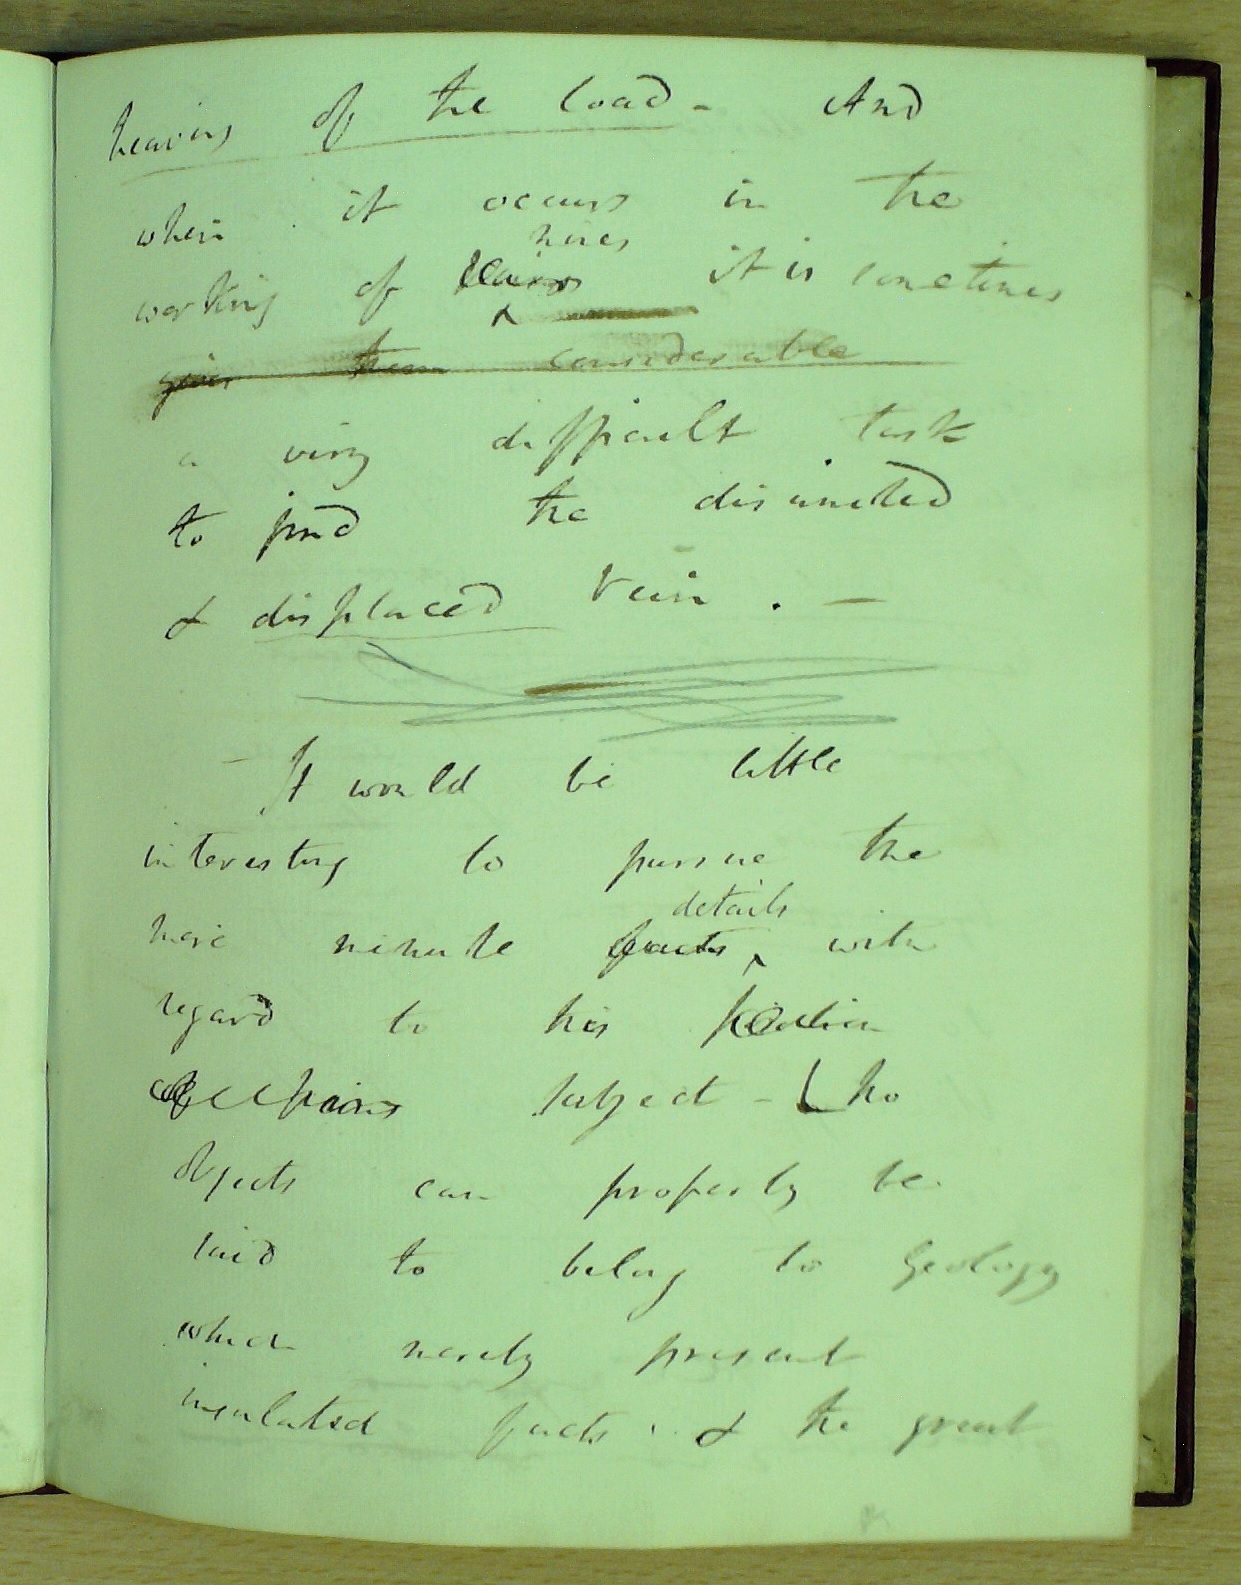 heaving of the load - And
when it occurs in the
mines
working of veins it is sometimes
gives them considerable
a very difficult task
to find the disunited
& displaced Vein . —
It would be little
interesting to pursue the
details
more minute facts with
regard to this
subject - No
objects can properly be
said to belong to Geology
which merely present
insulated facts . & the great